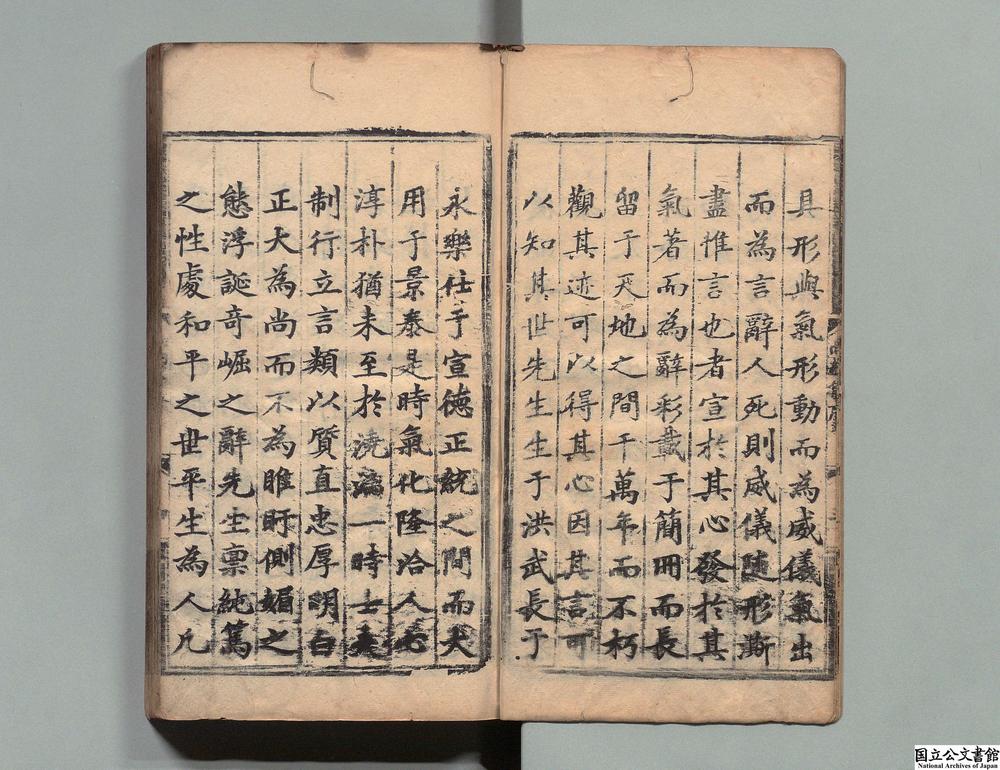 具形與氣形動而為威儀氣出
而為言辭人死則威儀随形漸
盡惟言也者宣於其心發於其
氣著而為辭彩載于簡冊而長
留于天地之間千萬年而不朽
觀其迹可以得其心因其言可
以知其世先生生于洪武長于
永樂仕乎宣德正統之間而大
用于景泰是時氣化隆洽人心
淳朴猶未至於澆漓一時士夫
制行立言類以質直忠厚明白
正大為尚而不為睢盱側媚之
態浮誕奇崛之辭先生禀純篤
之性處和平之世平生為人凡
国立公文書館
National Archives of Japan